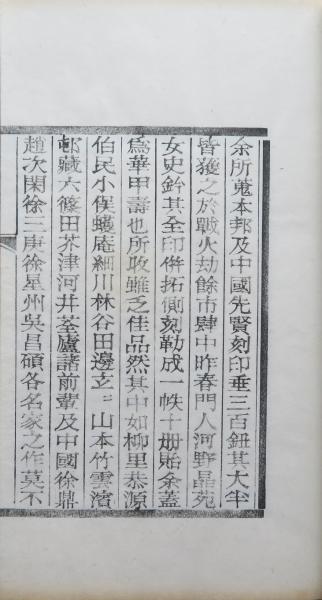 余所蒐本邦及中國先賢刻印垂三百鈕其大半
皆獲之於戰火劫餘市肆中昨春門人河野晶苑
女史鈐其全印併拓側刻勒成一帙十冊貽余蓋
為華甲壽也所收雖乏佳品然其中如柳里恭源
伯民小俣蠖庵細川林谷田邊玄〻山本竹雲濱
邨藏六篠田芥津河井荃廬諸前輩及中國徐鼎
趙次閑徐三庚徐星州吳昌碩各名家之作莫不